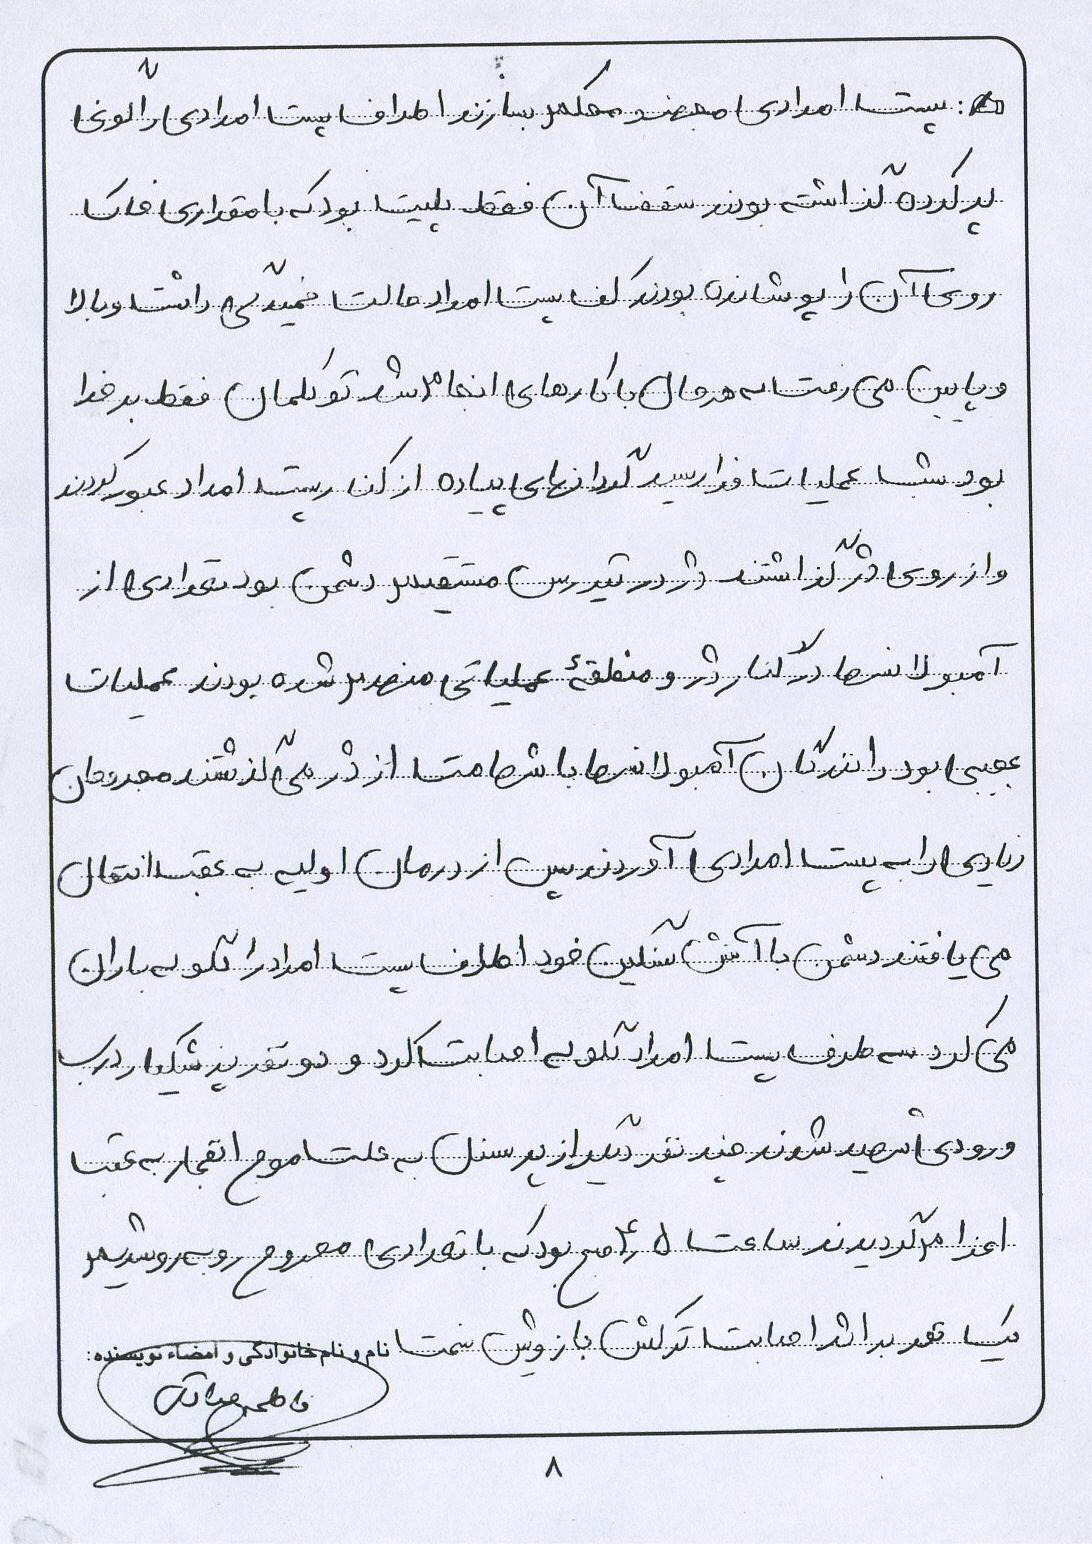 : پست امدادی مجهز و محکم بسازند اطراف پست امدادی را گونی
پر کرده گذاشته بودند سقف آن فقط پلیت بود که با مقداری خاک
روی آن را پوشانده بودند کف پست امداد حالت خمیدگی داشت و بالا
و پایین می رفت به هر حال با کارهای انجام شد توکلمان فقط بر خدا
بود شب عملیات فرا رسید گردانهای پیاده از کنار پست امداد عبور کردند
و از روی دژ گذاشتند دژ در تیررس مستقیم دشمن بود تعدادی از
آمبولانس ها در کنار دژ و منطقهٔ عملیاتی منهدم شده بودند عملیات
عجیبی بود رانندگان آمبولانس ها با شهامت از دژ می گذشتند مجروحان
زیادی را به پست امدادی آوردند پس از درمان اولیه به عقب انتقال
می یافتند دشمن با آتش سنگین خود اطراف پست امداد را گلوله باران
می کرد سه طرف پست امداد گلوله اصابت کرد و دو نفر پزشکیار درب
ورودی شهید شدند چند نفر دیگر از پرسنل به علت موج انفجار به عقب
اعزام گردیدند ساعت ۴٫۵ صبح بود که با تعدادی مجروح روبه رو شدیم
یک نفر بر اثر اصابت ترکش بازویش سمت
نام و نام خانوادگی و امضاء نویسنده:
۸